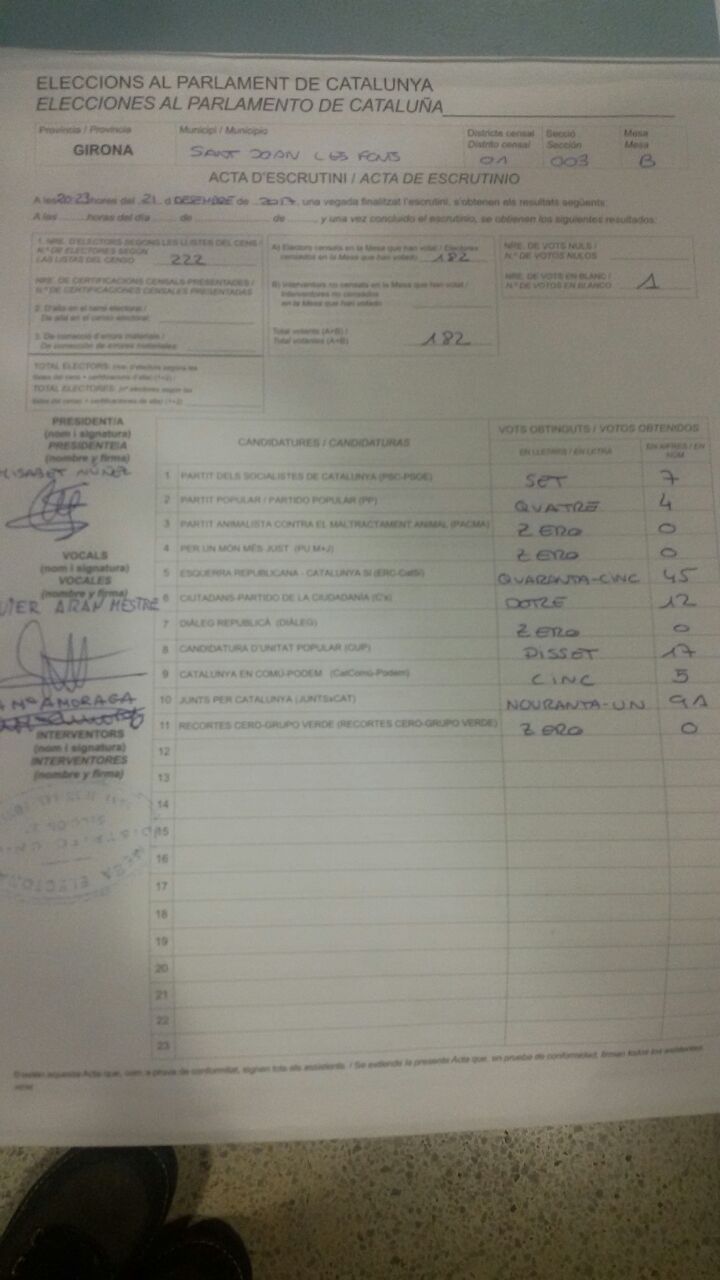 ELECCIONS AL PARLAMENT DE CATALUNYA
ELECCIONES AL PARLAMENTO DE CATALUÑA
Província / Provincia
Municipi / Municipio
Districte censal
Distrito censal
Secció
Sección
Mesa
Mesa
GIRONA
SANT JOAN LES FONTS
01
003
B
ACTA D'ESCRUTINI / ACTA DE ESCRUTINIO
A les 20:23 hores del 21 d DESEMBRE de 2017, una vegada finalitzat l'escrutini, s'obtenen els resultats següents:
A las horas del día de de y una vez concluido el escrutinio, se obtienen los siguientes resultados:
1. NRE. D'ELECTORS SEGONS LES LLISTES DEL CENS /
N.º DE ELECTORES SEGÚN
LAS LISTAS DEL CENSO 222
NRE. DE CERTIFICACIONS CENSALS PRESENTADES /
N.º DE CERTIFICACIONES CENSALES PRESENTADAS
2. D'alta en el cens electoral /
De alta en el censo electoral:
3. De correcció d'errors materials /
De corrección de errores materiales:
TOTAL ELECTORS:
TOTAL ELECTORES:
A) Electors censats en la Mesa que han votat / Electores
censados en la Mesa que han votado 182
B) Interventors no censats en la Mesa que han votat /
Interventores no censados
en la Mesa que han votado
Total votants (A+B) /
Total votantes (A+B) 182
NRE. DE VOTS NULS /
N.º DE VOTOS NULOS
NRE. DE VOTS EN BLANC /
N.º DE VOTOS EN BLANCO 1
PRESIDENT/A
(nom i signatura)
PRESIDENTE/A
(nombre y firma)
LISABET NÚÑEZ
VOCALS
(nom i signatura)
VOCALES
(nombre y firma)
ARAN MESTRE
Mª AMORAGA
INTERVENTORS
(nom i signatura)
INTERVENTORES
(nombre y firma)
CANDIDATURES / CANDIDATURAS
VOTS OBTINGUTS / VOTOS OBTENIDOS
EN LLETRES / EN LETRA
EN XIFRES / EN NÚM
1 PARTIT DELS SOCIALISTES DE CATALUNYA (PSC-PSOE) SET 7
2 PARTIT POPULAR / PARTIDO POPULAR (PP) QUATRE 4
3 PARTIT ANIMALISTA CONTRA EL MALTRACTAMENT ANIMAL (PACMA) ZERO 0
4 PER UN MÓN MÉS JUST (PUM+J) ZERO 0
5 ESQUERRA REPUBLICANA - CATALUNYA SÍ (ERC-CatSí) QUARANTA-CINC 45
6 CIUTADANS-PARTIDO DE LA CIUDADANÍA (C's) DOTZE 12
7 DIÀLEG REPUBLICÀ (DIÀLEG) ZERO 0
8 CANDIDATURA D'UNITAT POPULAR (CUP) DISSET 17
9 CATALUNYA EN COMÚ-PODEM (CatComú-Podem) CINC 5
10 JUNTS PER CATALUNYA (JUNTSxCAT) NOURANTA-UN 91
11 RECORTES CERO-GRUPO VERDE (RECORTES CERO-GRUPO VERDE) ZERO 0
12
13
14
15
16
17
18
19
20
21
22
23
aquesta Acta que, com a prova de conformitat, signen tots els assistents. / Se extiende la presente Acta que, en prueba de conformidad, firman todos los asistentes.